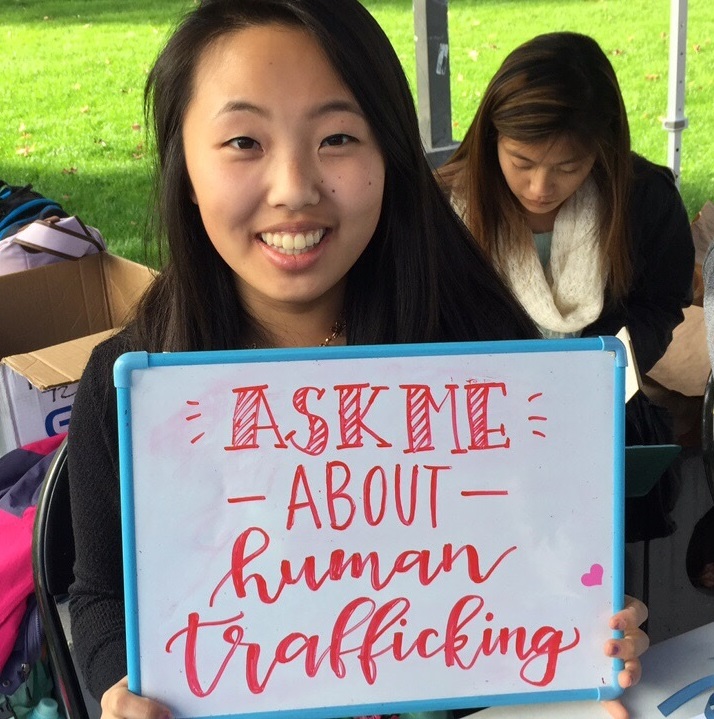 ASK ME
— ABOUT —
human
trafficking